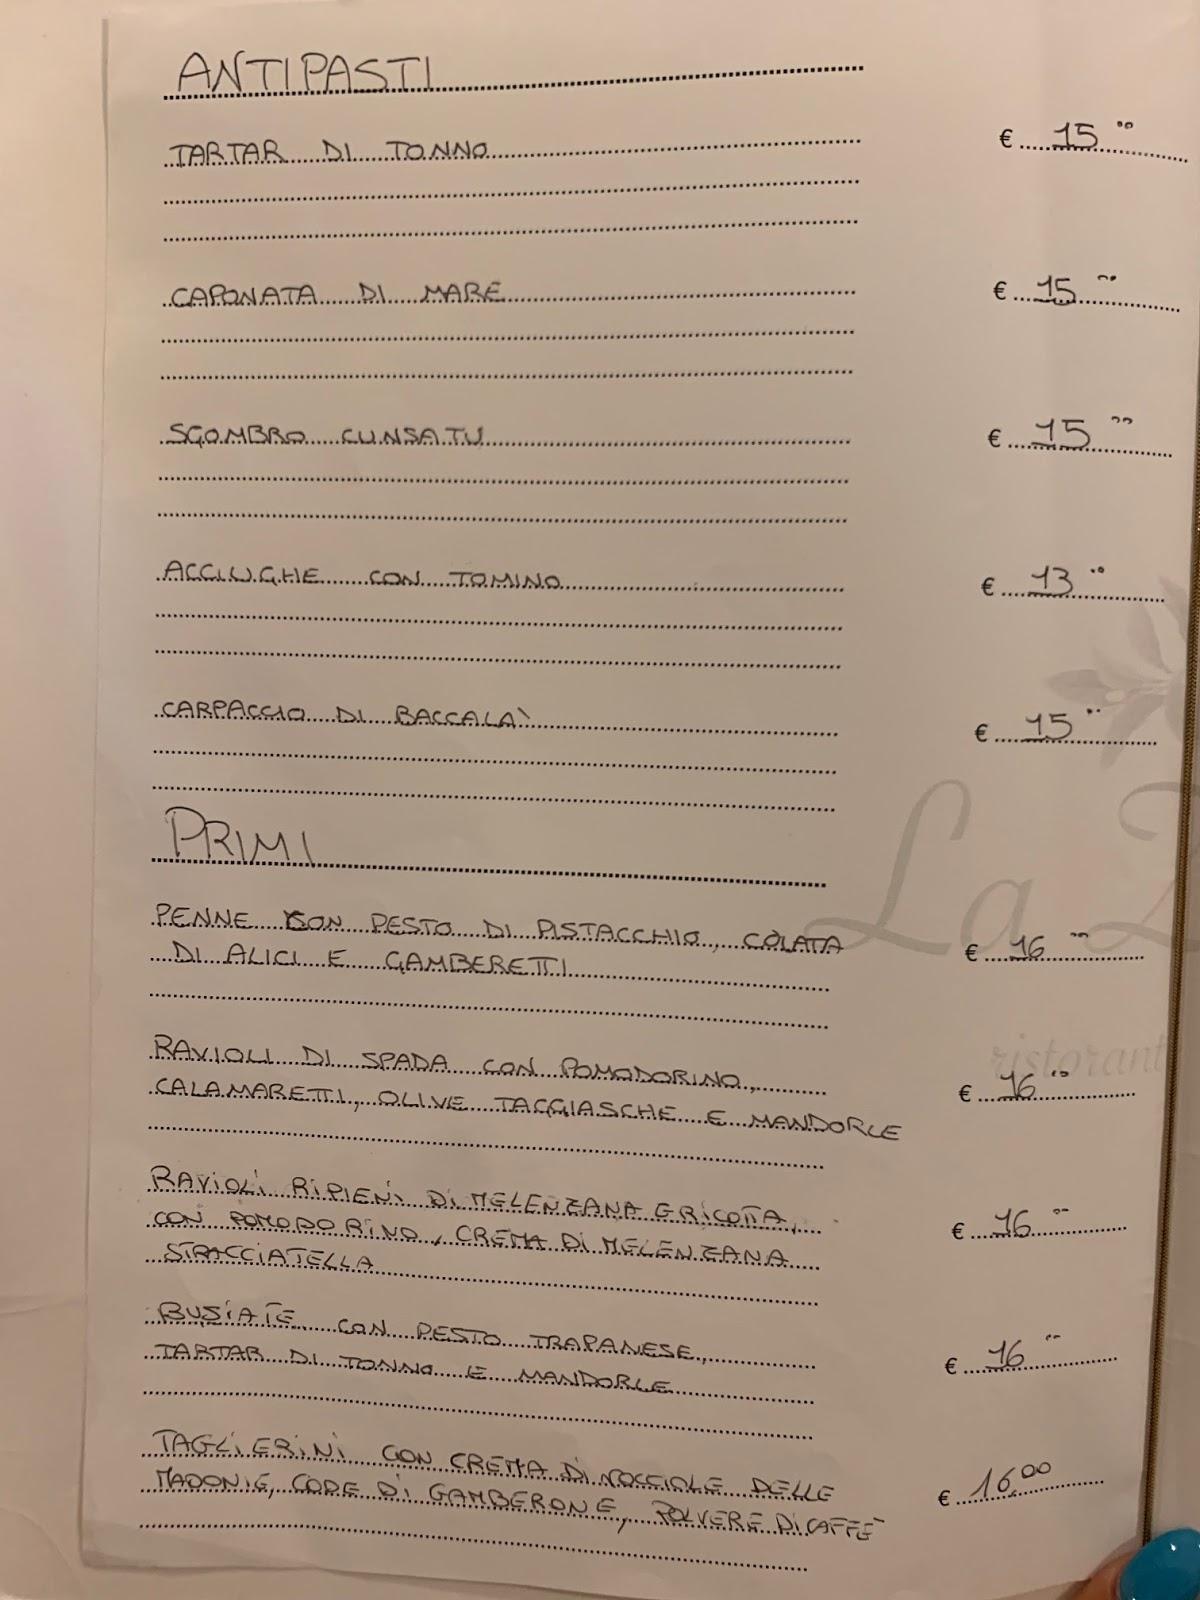 ANTIPASTI
TARTAR DI TONNO € 15,00
CAPONATA DI MARE € 15,00
SGOMBRO CUNSATU € 15,00
ACCIUGHE CON TOMINO € 13,00
CARPACCIO DI BACCALA' € 15,00
PRIMI
PENNE CON PESTO DI PISTACCHIO, COLATA
DI ALICI E GAMBERETTI € 16,00
RAVIOLI DI SPADA CON POMODORINO,
CALAMARETTI, OLIVE TAGGIASCHE E MANDORLE € 16,00
RAVIOLI RIPIENI DI MELENZANA E RICOTTA,
CON POMODORINO, CREMA DI MELENZANA € 16,00
STRACCIATELLA
BUSIATE CON PESTO TRAPANESE,
TARTAR DI TONNO E MANDORLE € 16,00
TAGLIERINI CON CREMA DI NOCCIOLE DELLE
MADONIE, CODE DI GAMBERONE, POLVERE DI CAFFE' € 16,00
La
ristorant